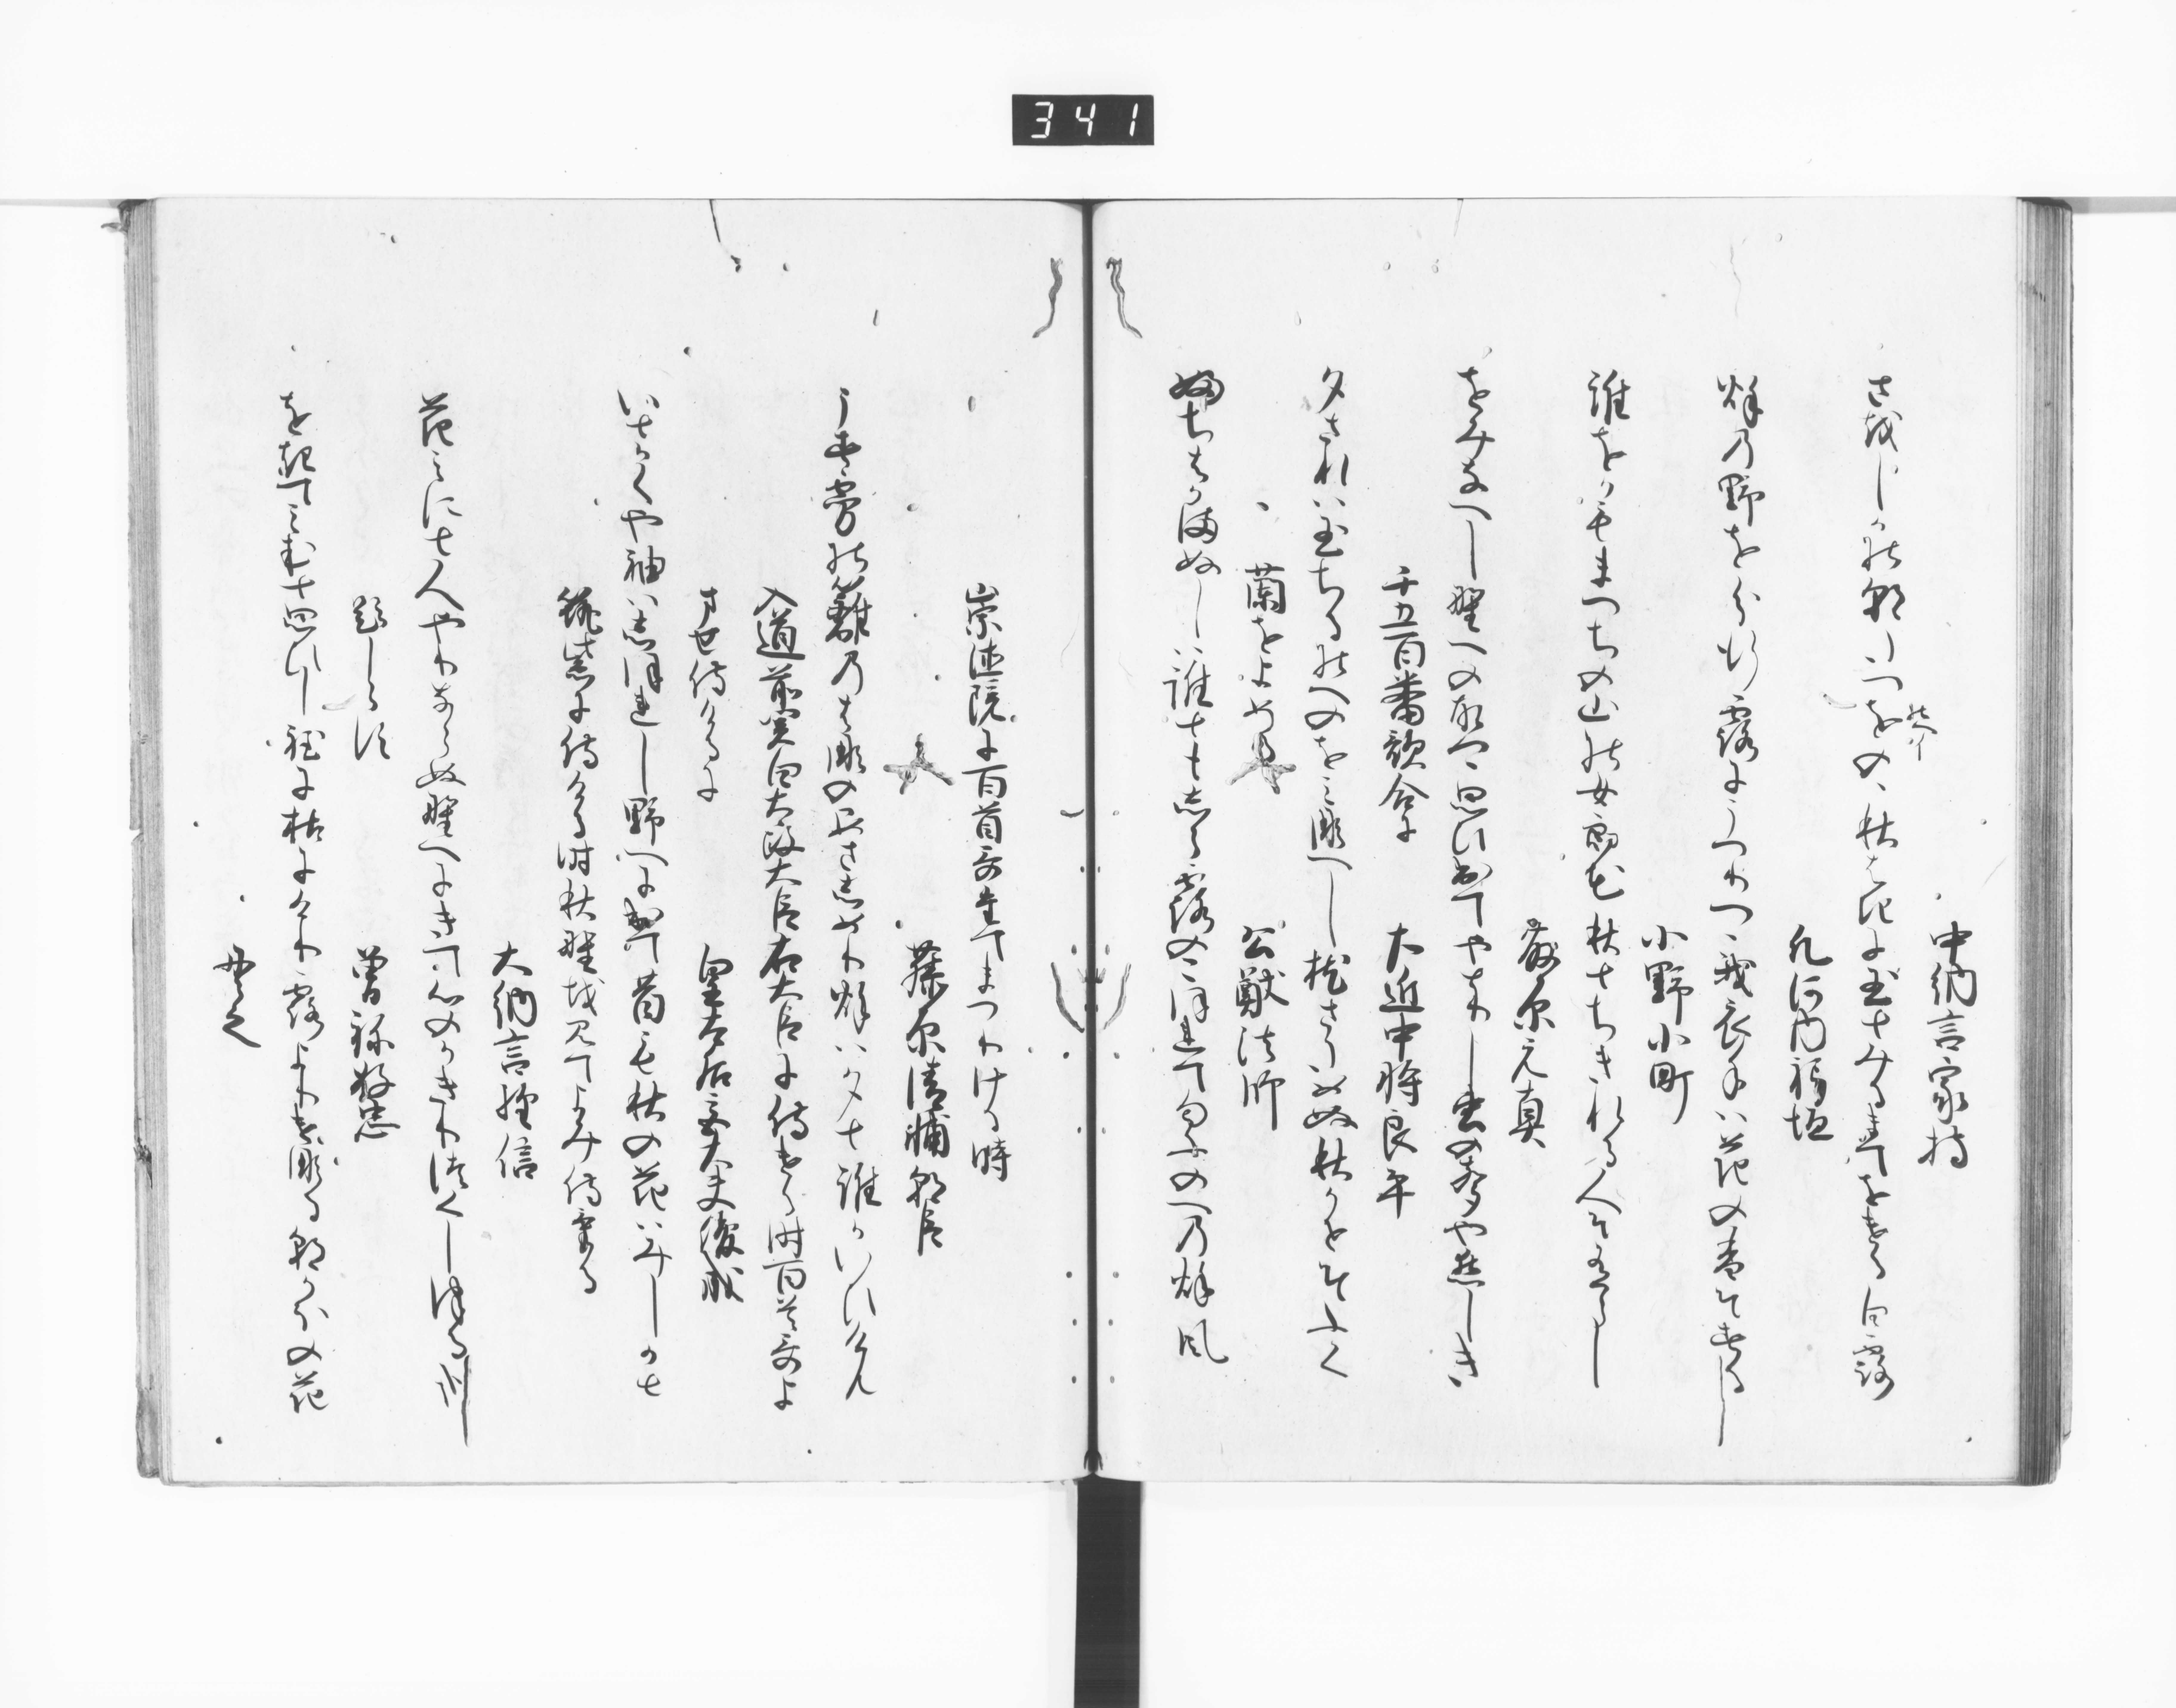 341
中納言家持
さをしかの朝たつをのゝ秋はきに玉とみるまてをける白露
凡河内躬恒
秋の野を分行露にうつりつゝ我衣手は花のかそする
小野小町
誰をかもまつちの山の女郎花秋とちきれる人そあるらし
藤原元真
をみなへし野への故さと思ひ出てやとりし虫の声や恋しき
千五百番歌合に　左近中将良平
夕されは玉ちるのへのをみなへし枕さためぬ秋かせそふく
蘭をよめる　公猷法師
ふちはかまぬしは誰ともしら露のこほれて匂ふのへの秋風
崇徳院に百首哥奉てまつりける時
藤原清輔朝臣
うす霧の籬のはなのあさしめり秋は夕と誰かいひけん
入道前関白太政大臣右大臣に侍ける時百首哥よ
ませ侍けるに　皇太后宮大夫俊成
いとかくや袖はしほれし野へに出て昔も秋の花はみしかと
筑紫に侍ける時秋野を見てよみ侍ける
大納言経信
花みにと人やりならぬ野へにきて心のかきりつくしつるかな
題しらす　曽祢好忠
をきてみむと思ひし程に枯にけり露よりけなる朝かほの花
貫之